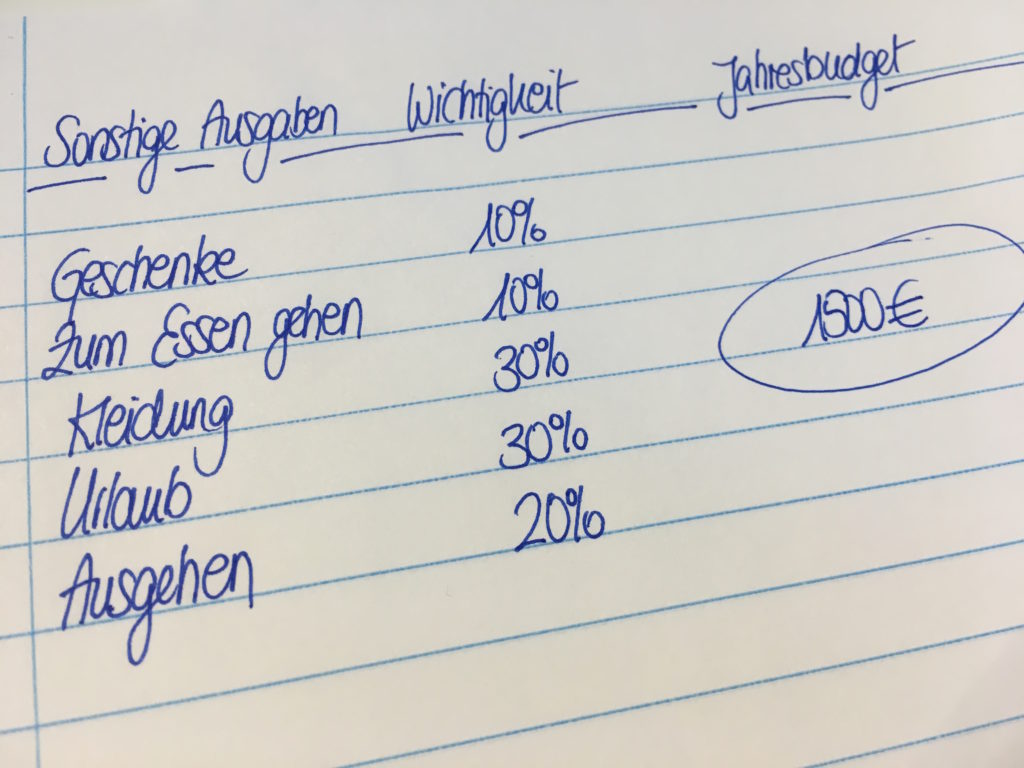 Sonstige Ausgaben Wichtigkeit Jahresbudget
Geschenke 10%
Zum Essen gehen 10% 1500€
Kleidung 30%
Urlaub 30%
Ausgehen 20%